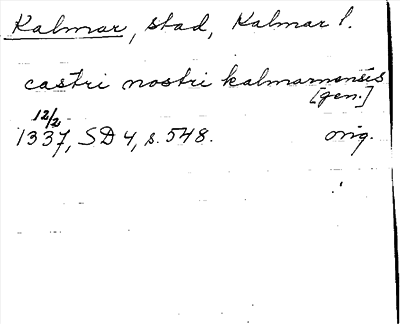 Kalmar, stad, Kalmar l.
castri nostri kalmarnensis
[gen.]
12/2
1337, SD 4, s. 548. orig.